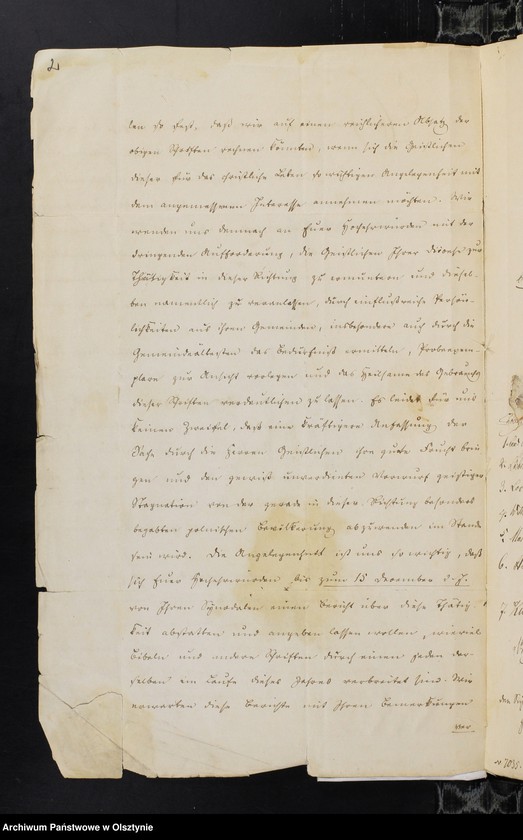 2.
ten so fest, daß wir auf einen reichlicheren Absatz der
obigen Schriften rechnen könnten, wenn sich die Geistlichen
dieser für das christliche Leben so wichtigen Angelegenheit mit
dem angemessenen Interesse annehmen möchten. Wir
wenden uns demnach an Euer Hochehrwürden mit der
dringenden Aufforderung, die Geistlichen Ihrer Diözese zur
Thätigkeit in dieser Richtung zu ermuntern und diesel-
ben namentlich zu veranlassen, durch einflußreiche Persön-
lichkeiten aus ihren Gemeinden, insbesondere auch durch die
Gemeindeältesten das Bedürfniß ermitteln, Probeexem-
plare zur Ansicht vorlegen und das Heilsame des Gebrauchs
dieser Schriften verdeutlichen zu lassen. Es leidet für uns
keinen Zweifel, daß eine kräftigere Anfassung der
Sache durch die Herren Geistlichen ihre gute Frucht brin-
gen und den gewiß unverdienten Vorwurf geistiger
Stagnation von der gerade in dieser Richtung besonders
begabten polnischen Bevölkerung abzuwenden im Stande
sein wird. Die Angelegenheit ist uns so wichtig, daß
sich Euer Hochehrwürden bis zum 15 December d. J.
von Ihren Synodalen einen Bericht über diese Thätig-
keit abstatten und angeben lassen wollen, wieviel
Bibeln und andere Schriften durch einen jeden der-
selben im Laufe dieses Jahres verbreitet sind. Wir
erwarten diese Berichte mit Ihren Bemerkungen
ver
Archiwum Państwowe w Olsztynie